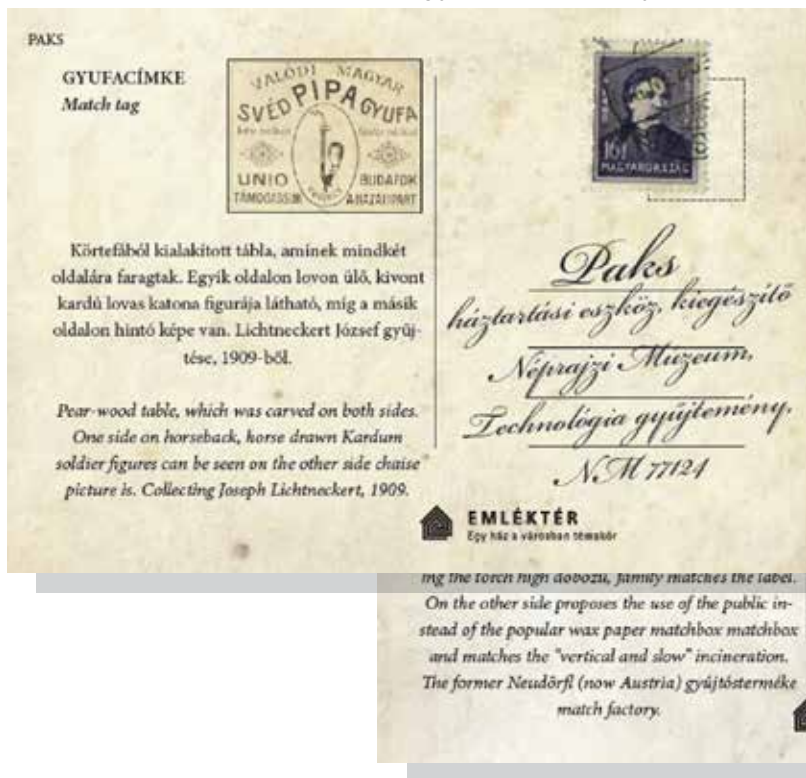 PAKS
GYUFACÍMKE
Match tag
VALÓDI MAGYAR
SVÉD PIPA GYUFA
UNIO BUDAFOK
TÁMOGASSUK A HAZAI IPART
Körtefából kialakított tábla, aminek mindkét
oldalára faragtak. Egyik oldalon lovon ülő, kivont
kardú lovas katona figurája látható, míg a másik
oldalon hintó képe van. Lichtneckert József gyűj-
tése, 1909-ből.
Pear-wood table, which was carved on both sides.
One side on horseback, horse drawn Kardum
soldier figures can be seen on the other side chaise
picture is. Collecting Joseph Lichtneckert, 1909.
16f
MAGYARORSZÁG
Paks
háztartási eszköz, kiegészítő
Néprajzi Múzeum,
Technológia gyűjtemény,
NM 77124
EMLÉKTÉR
Egy ház a városban témakör
ing the torch high dobozú, family matches the label.
On the other side proposes the use of the public in-
stead of the popular wax paper matchbox matchbox
and matches the "vertical and slow" incineration.
The former Neudörfl (now Austria) gyújtósterméke
match factory.